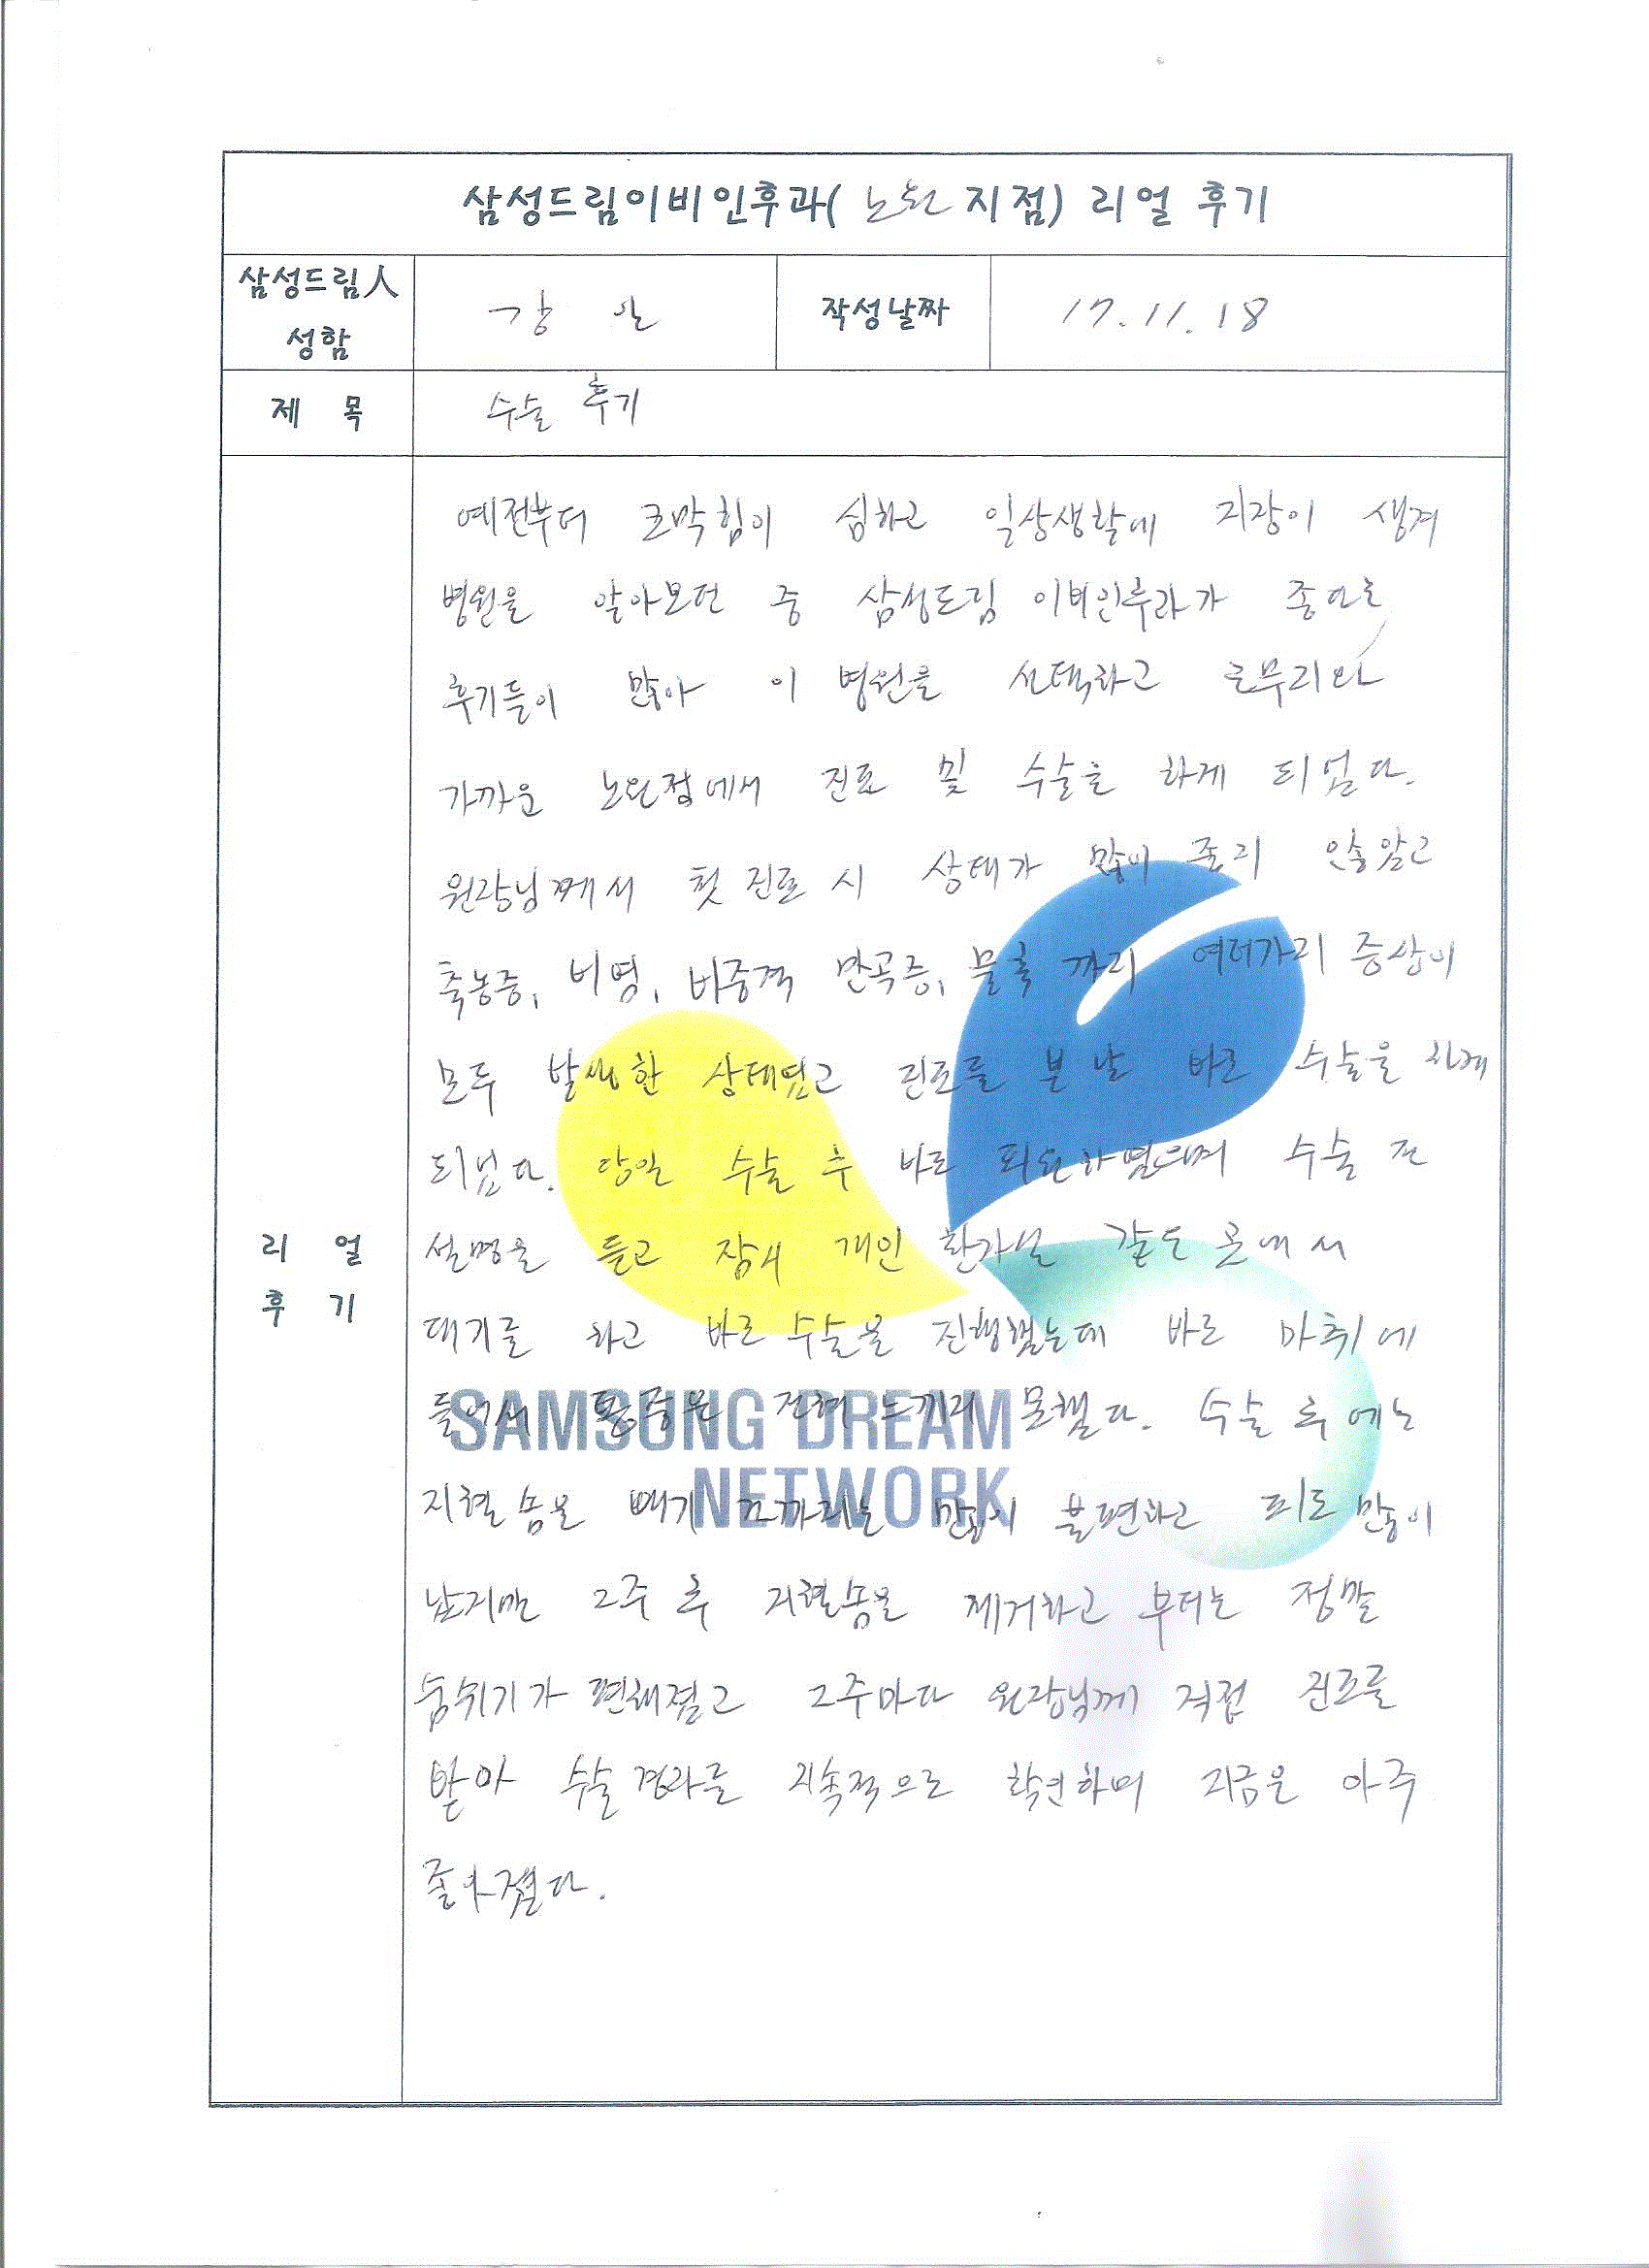 삼성드림이비인후과( 노원 지점) 리얼 후기
삼성드림人 성함
강 일
작성날짜
17.11.18
제 목
수술 후기
리 얼 후 기
예전부터 코막힘이 심하고 일상생활에 지장이 생겨
병원을 알아보던 중 삼성드림 이비인후과가 좋다는
후기들이 많아 이 병원을 선택하고 근무지와
가까운 노원점에서 진료 및 수술을 하게 되었다.
원장님께서 첫 진료 시 상태가 많이 좋지 않았고
축농증, 비염, 비중격 만곡증, 물혹 까지 여러가지 증상이
모두 발생한 상태였고 진료를 본 날 바로 수술을 하게
되었다. 당일 수술 후 바로 퇴원하였으며 수술 전
설명을 듣고 잠시 개인 같은 곳에서
대기를 하고 바로 수술을 진행했는데 바로 마취에
들어서 통증은 전혀 느끼지 못했다. 수술 후에는
지혈솜을 빼기 전까지는 많이 불편하고 피도 많이
났지만 2주 후 지혈솜을 제거하고 부터는 정말
숨쉬기가 편해졌고 2주마다 원장님께 직접 진료를
받아 수술경과를 지속적으로 확인하며 지금은 아주
좋아졌다.
SAMSUNG DREAM
NETWORK